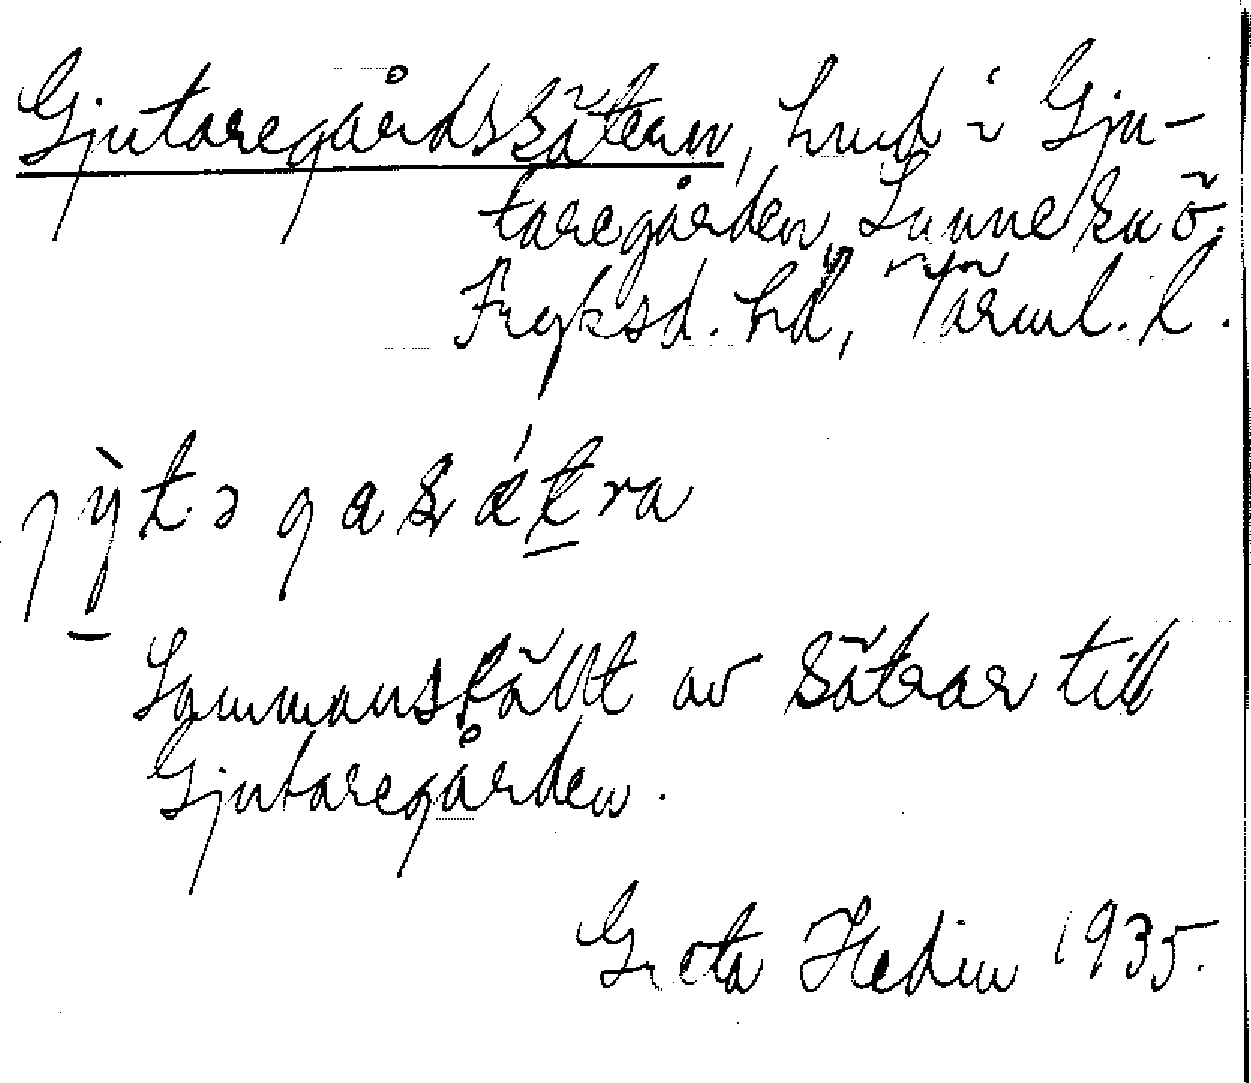 Gjutaregårdssätern, hmd i Gju-
taregården, Sunne sn ö.
Fryksd. hd, Värml. l.
Sammanställt av sätrar till
Gjutaregården.
Greta Hedin 1935.